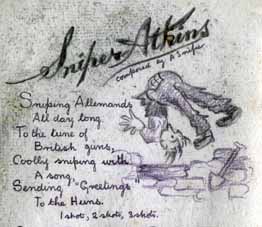 Sniper Atkins
composed by A Sniper
Sniping Allemands
All day long.
To the tune of
British guns,
Coolly sniping with
A song,
Sending "Greetings"
To the Huns.
1 shot, 2 shots, 3 shots.